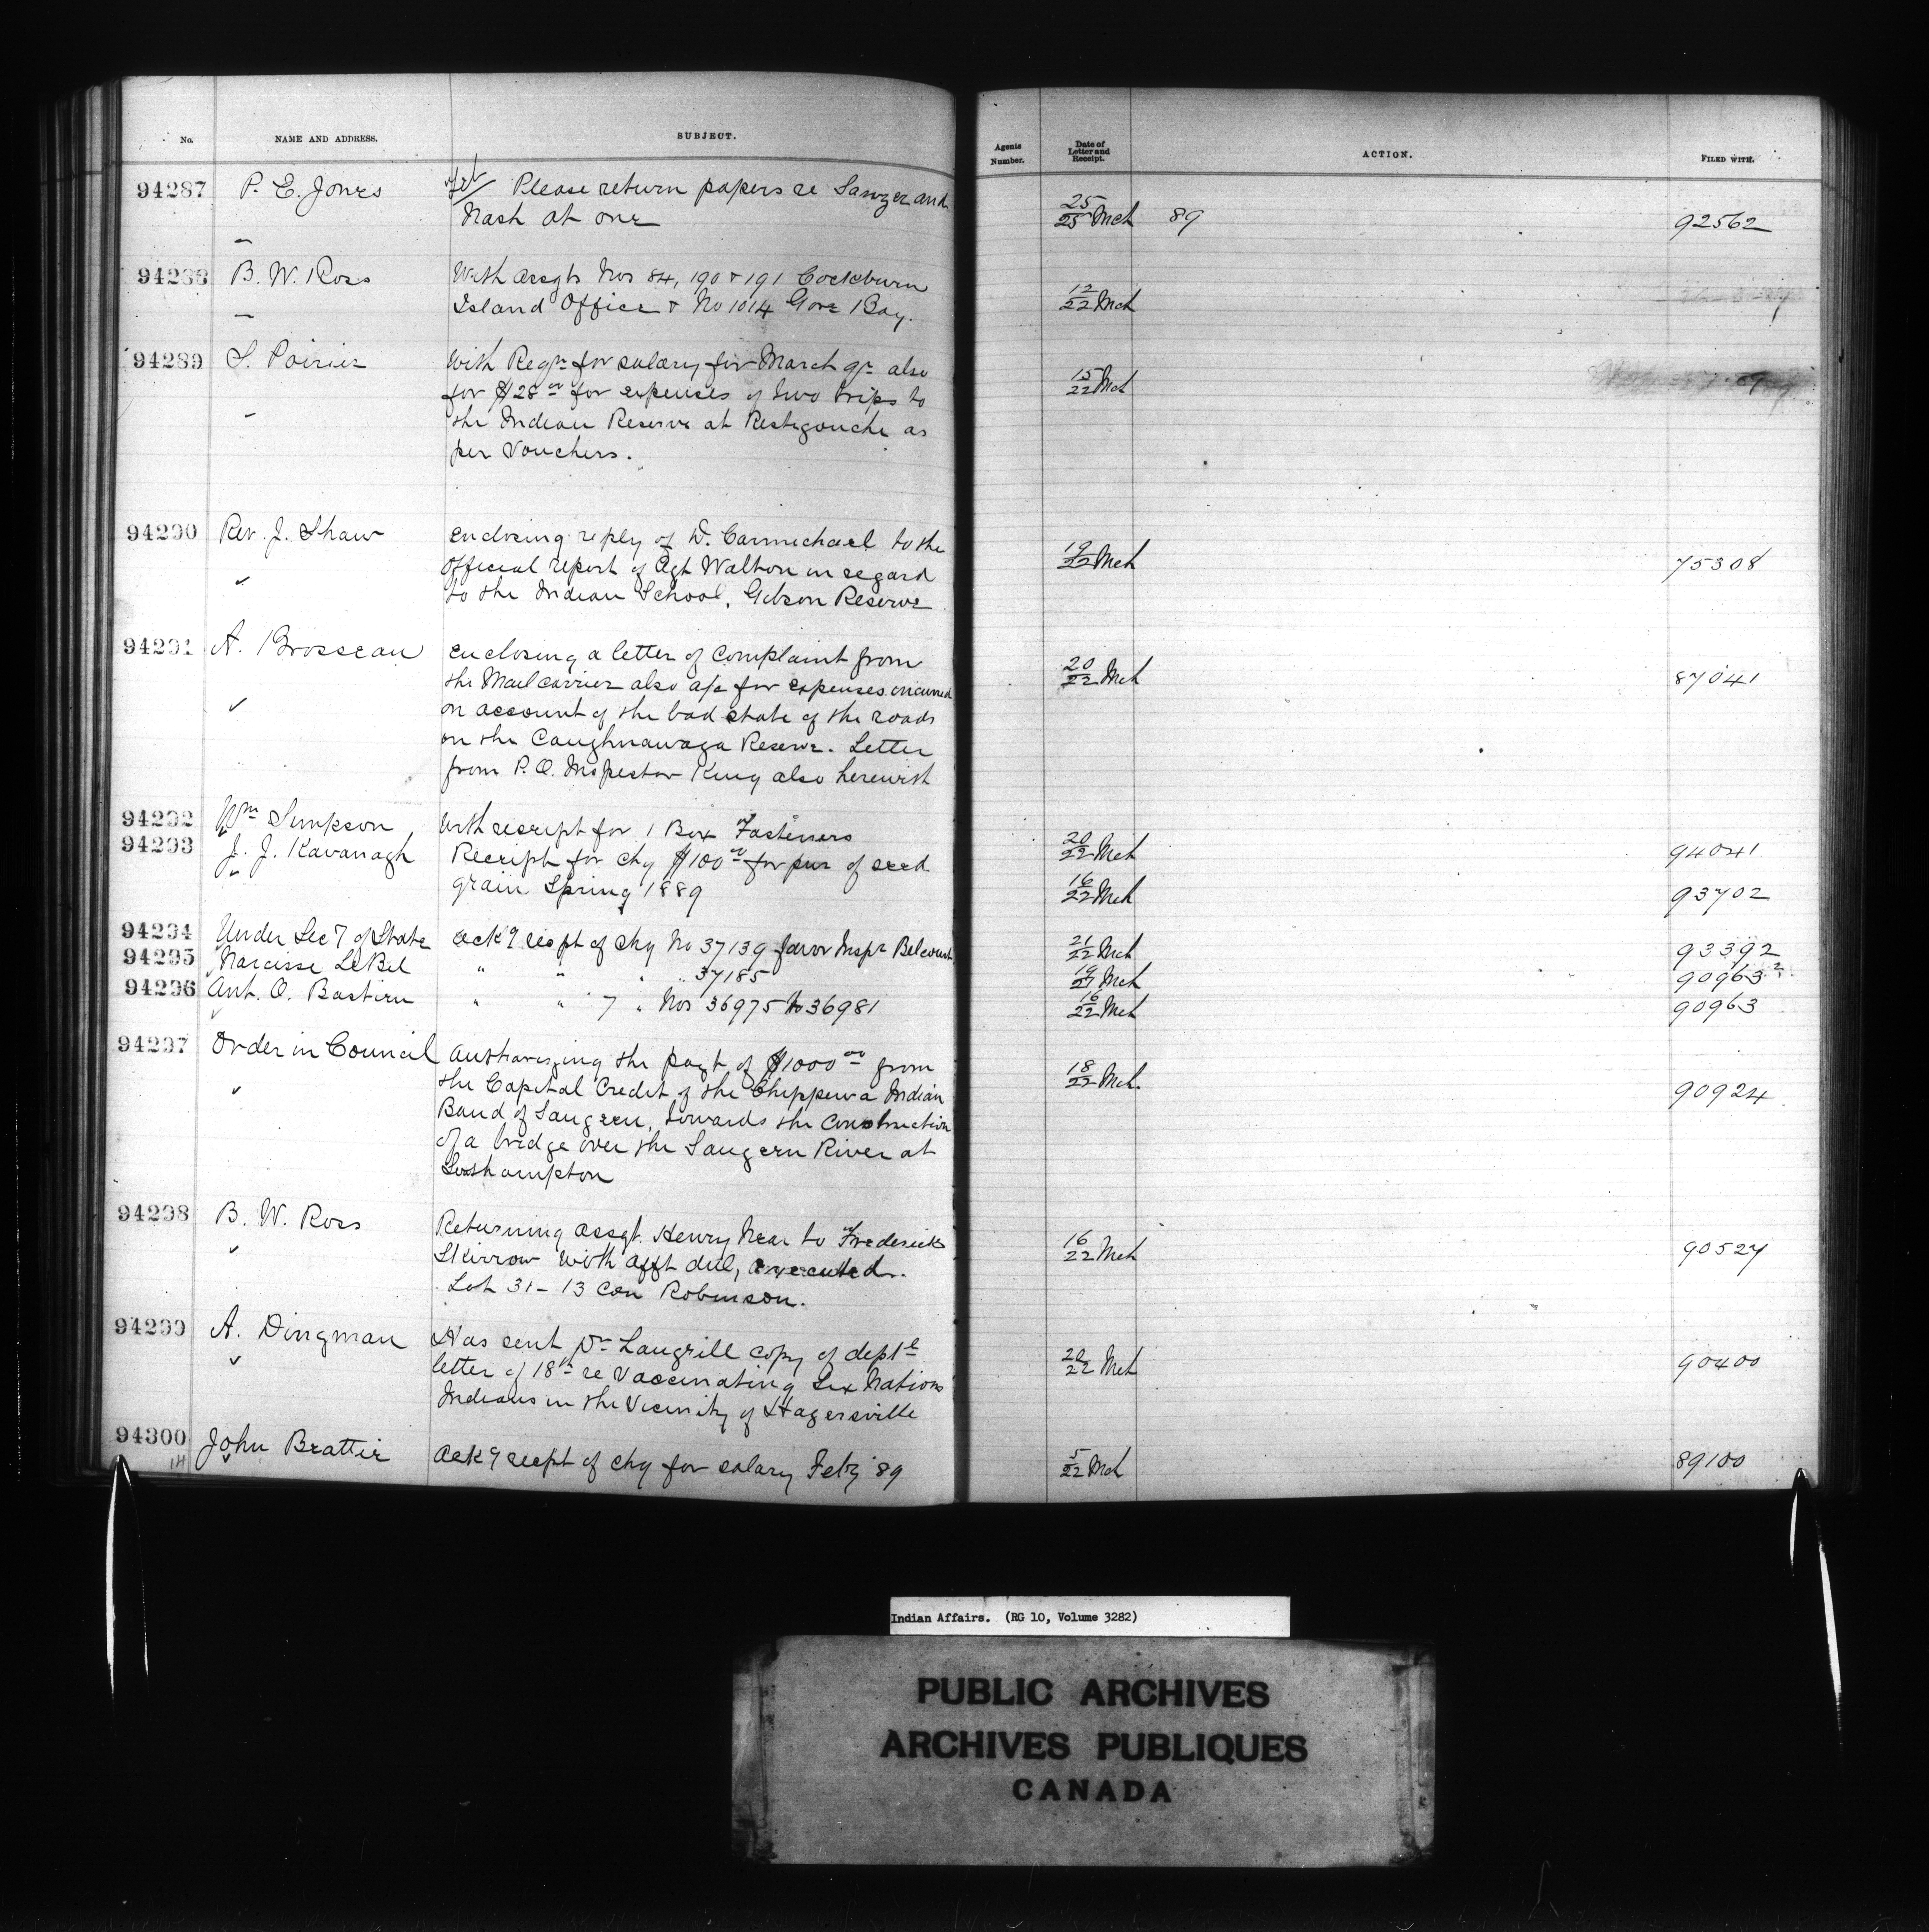 No. NAME AND ADDRESS. SUBJECT. Agents Number. Date of Letter and Receipt. ACTION. FILED WITH.
94287 P. E. Jones Please return papers re Sawyer and
Nash at once 25/25 Mch 89 92562
94288 B. W. Ross With Assgts Nos 84, 190 & 191 Cockburn
Island Office & No 1014 Gore Bay. 12/22 Mch
94289 S. Poirier With Reqn for salary for March qr also 15/22 Mch
for $28 00 for expenses of two trips to
the Indian Reserve at Restigouche as
per Vouchers.
94290 Rev. J. Shaw enclosing reply of D. Carmichael to the
Official report of Agt Walton in regard 19/22 Mch 75308
to the Indian School, Gibson Reserve
94291 A. Brosseau enclosing a letter of Complaint from
the Mail carrier also a/c for expenses incurred 20/22 Mch 87041
on account of the bad state of the roads
on the Caughnawaga Reserve. Letter
from P.O. Inspector King also herewith
94292 Wm Simpson With receipt for 1 Box Fasteners 20/22 Mch 94041
94293 J. J. Kavanagh Receipt for chq $100 00 for pur of seed
grain Spring 1889 16/22 Mch 93702
94294 Under Secy of State ackg recpt of chq No 37139 favor Inspr Belcourt 21/22 Mch 93392
94295 Narcisse LeBel " " " " 37185 19/27 Mch 90963 2
94296 Ant. O. Bastien " " 7 " Nos 36975 to 36981 16/22 Mch 90963
94297 Order in Council Authorizing the payt of $1000 00 from
the Capital Credit of the Chippewa Indian 18/22 Mch. 90924
Band of Saugeen, towards the Construction
of a bridge over the Saugeen River at
Southampton
94298 B. W. Ross Returning assgt. Henry Near to Frederick
Skirrow with afft duly executed. 16/22 Mch 90527
Lot 31 - 13 Con Robinson.
94299 A. Dingman Has sent Dr Langrill copy of deptl
letter of 18th re Vaccinating Six Nations 20/22 Mch 90400
Indians in the Vicinity of Hagersville
94300 John Beattie Ackg recpt of chq for salary Feby 89 5/22 Mch 89100
Indian Affairs. (RG 10, Volume 3282)
PUBLIC ARCHIVES
ARCHIVES PUBLIQUES
CANADA